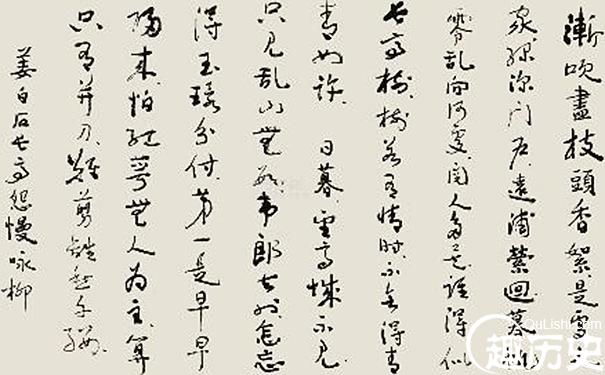 漸吹盡枝頭香絮是處人
家绿深门户遠浦縈迴暮帆
零乱向何處阅人多矣誰得似
长亭樹樹若有情時不会得青
青如許 日暮望高城不见
只见乱山無数韦郎去也怎忘
得玉環分付第一是早早
歸来怕红萼無人为主算
只有并刀難剪離愁千缕
姜白石长亭怨慢咏柳
QuLishi.com
趣历史